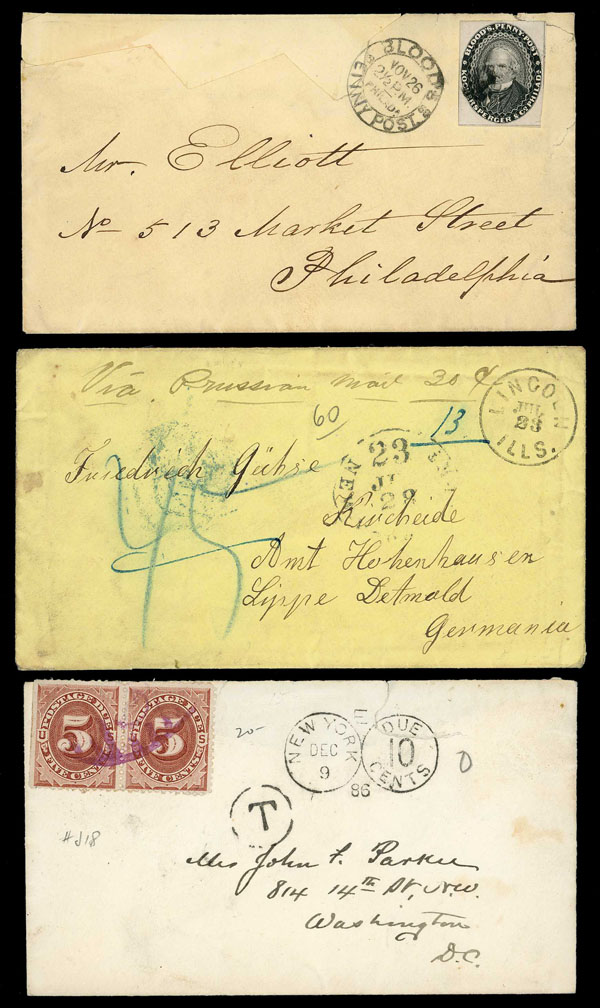 BLOOD'S PENNY POST
NOV 26
2½ P.M.
PHILADA
BLOOD'S PENNY·POST
KOCHERSPERGER & CO. PHILADA
Mr. Elliott
No 513 Market Street
Philadelphia
Via Prussian Mail 30 ¢
60/
13
LINCOLN
JUL
23
ILLS.
23
28
NEW
Friedrich
Amt Hohenhausen
Lippe Detmold
Germania
POSTAGE DUE
POSTAGE DUE
C 5 5 S
FIVE CENTS
FIVE CENTS
20-
NEW YORK
DEC
9
86
DUE
10
CENTS
T
#J18
Mrs John F. Parker
814 14th St, N.W.
Washington
D.C.